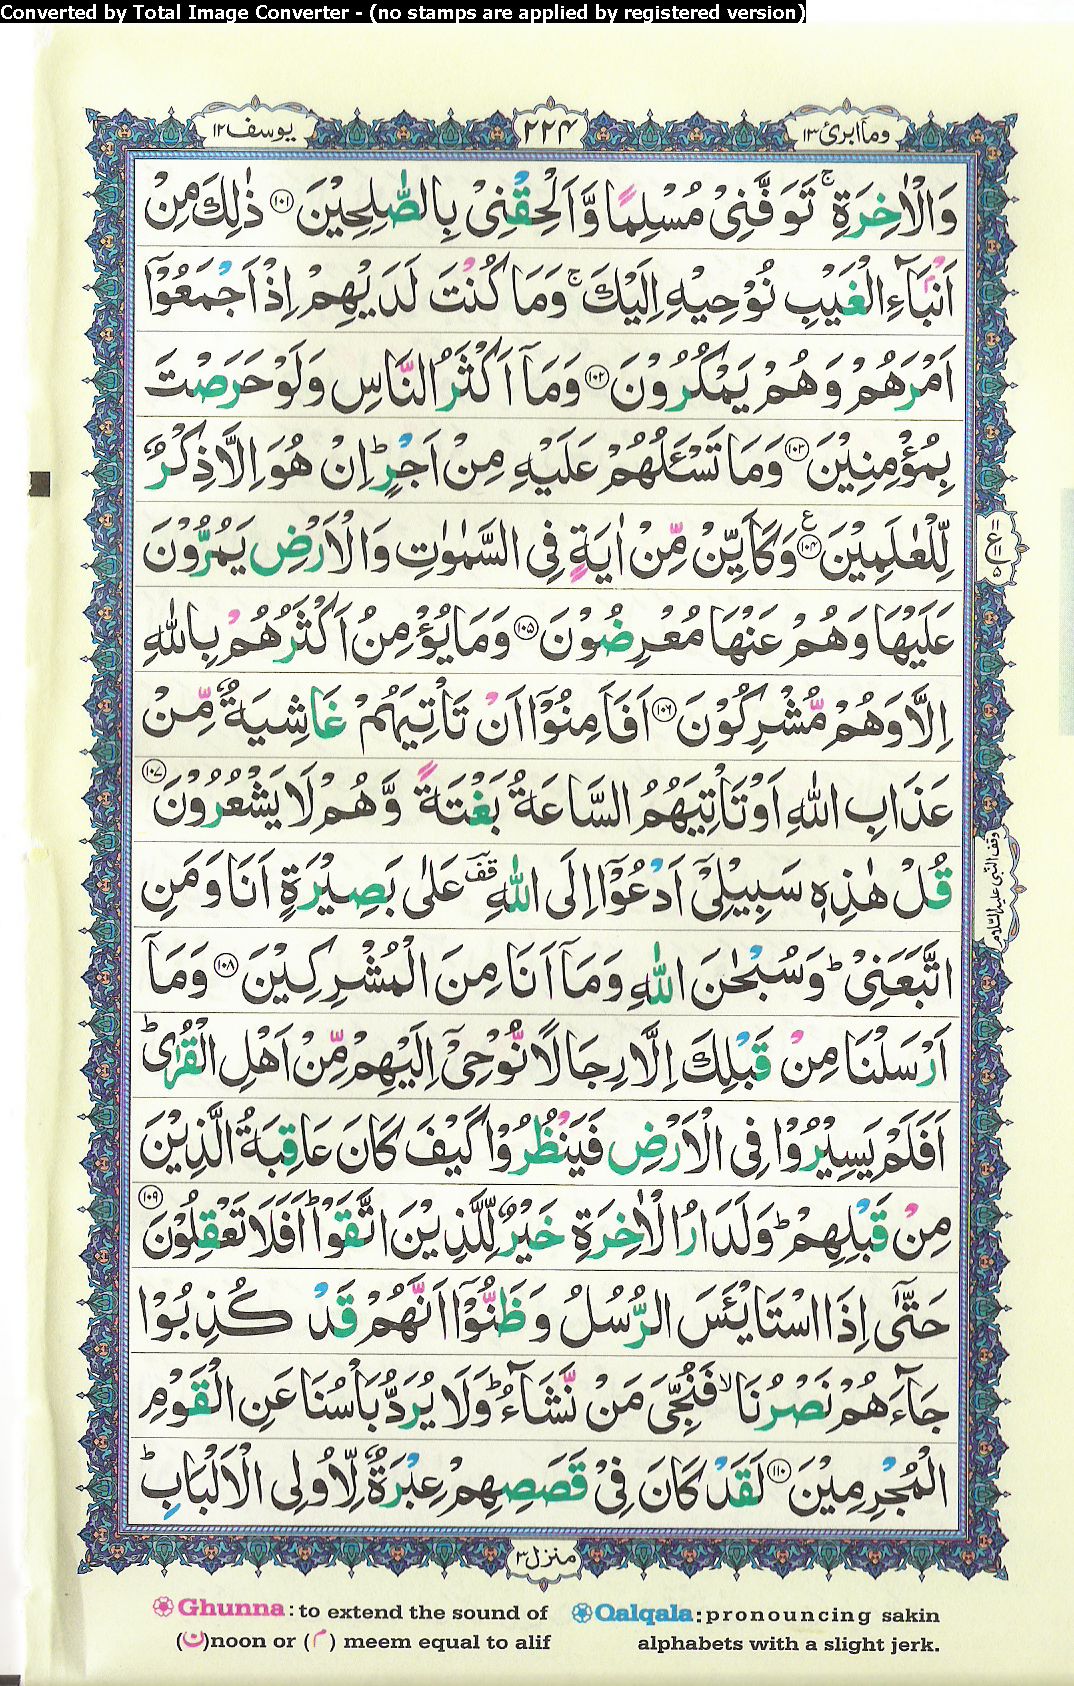 Converted by Total Image Converter - (no stamps are applied by registered version)
وماابرئ ١٣
٢٢٤
يوسف ١٢
وَالْاٰخِرَةِ ۚ تَوَفَّنِیْ مُسْلِمًا وَّاَلْحِقْنِیْ بِالصّٰلِحِیْنَ ﴿۱۰۱﴾ ذٰلِكَ مِنْ
اَنْۢبَآءِ الْغَیْبِ نُوْحِیْهِ اِلَیْكَ ۚ وَمَا كُنْتَ لَدَیْهِمْ اِذْ اَجْمَعُوْۤا
اَمْرَهُمْ وَهُمْ یَمْكُرُوْنَ ﴿۱۰۲﴾ وَمَاۤ اَكْثَرُ النَّاسِ وَلَوْ حَرَصْتَ
بِمُؤْمِنِیْنَ ﴿۱۰۳﴾ وَمَا تَسْـَٔلُهُمْ عَلَیْهِ مِنْ اَجْرٍ ؕ اِنْ هُوَ اِلَّا ذِكْرٌ
لِّلْعٰلَمِیْنَ ﴿۱۰۴﴾ ع وَكَاَیِّنْ مِّنْ اٰیَةٍ فِی السَّمٰوٰتِ وَالْاَرْضِ یَمُرُّوْنَ
عَلَیْهَا وَهُمْ عَنْهَا مُعْرِضُوْنَ ﴿۱۰۵﴾ وَمَا یُؤْمِنُ اَكْثَرُهُمْ بِاللّٰهِ
اِلَّا وَهُمْ مُّشْرِكُوْنَ ﴿۱۰۶﴾ اَفَاَمِنُوْۤا اَنْ تَاْتِیَهُمْ غَاشِیَةٌ مِّنْ
عَذَابِ اللّٰهِ اَوْ تَاْتِیَهُمُ السَّاعَةُ بَغْتَةً وَّهُمْ لَا یَشْعُرُوْنَ ﴿۱۰۷﴾
قُلْ هٰذِهٖ سَبِیْلِیْۤ اَدْعُوْۤا اِلَی اللّٰهِ ؔقف عَلٰی بَصِیْرَةٍ اَنَا وَمَنِ
اتَّبَعَنِیْ ؕ وَسُبْحٰنَ اللّٰهِ وَمَاۤ اَنَا مِنَ الْمُشْرِكِیْنَ ﴿۱۰۸﴾ وَمَاۤ
اَرْسَلْنَا مِنْ قَبْلِكَ اِلَّا رِجَالًا نُّوْحِیْۤ اِلَیْهِمْ مِّنْ اَهْلِ الْقُرٰی ؕ
اَفَلَمْ یَسِیْرُوْا فِی الْاَرْضِ فَیَنْظُرُوْا كَیْفَ كَانَ عَاقِبَةُ الَّذِیْنَ
مِنْ قَبْلِهِمْ ؕ وَلَدَارُ الْاٰخِرَةِ خَیْرٌ لِّلَّذِیْنَ اتَّقَوْا ؕ اَفَلَا تَعْقِلُوْنَ ﴿۱۰۹﴾
حَتّٰۤی اِذَا اسْتَایْـَٔسَ الرُّسُلُ وَظَنُّوْۤا اَنَّهُمْ قَدْ كُذِبُوْا
جَآءَهُمْ نَصْرُنَا ۙ فَنُجِّیَ مَنْ نَّشَآءُ ؕ وَلَا یُرَدُّ بَاْسُنَا عَنِ الْقَوْمِ
الْمُجْرِمِیْنَ ﴿۱۱۰﴾ لَقَدْ كَانَ فِیْ قَصَصِهِمْ عِبْرَةٌ لِّاُولِی الْاَلْبَابِ ؕ
١١
ع ١١
٥
وقف النبی علیه السلام
منزل ٣
Ghunna: to extend the sound of
(ن)noon or (م) meem equal to alif
Qalqala: pronouncing sakin
alphabets with a slight jerk.